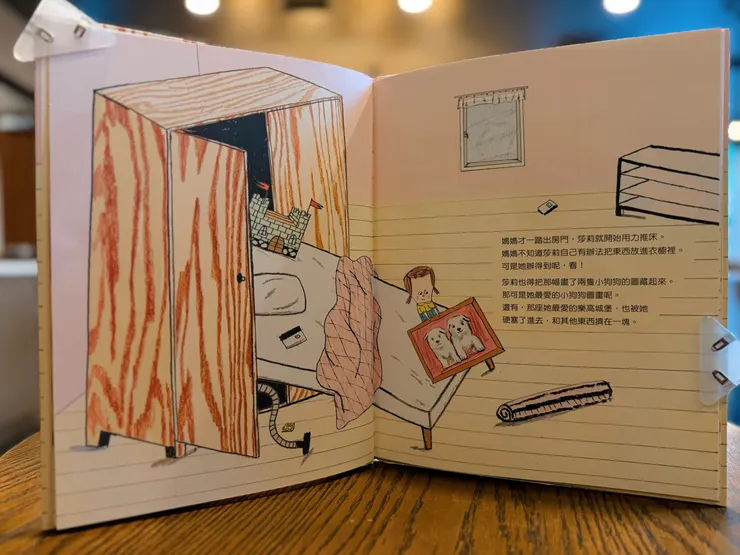 媽媽才一踏出房門，莎莉就開始用力推床。
媽媽不知道莎莉自己有辦法把東西放進衣櫥裡。
可是她辦得到呢，看！
莎莉也得把那幅畫了兩隻小狗狗的圖藏起來。
那可是她最愛的小狗狗圖畫呢。
還有，那座她最愛的樂高城堡，也被她
硬塞了進去，和其他東西擠在一塊。